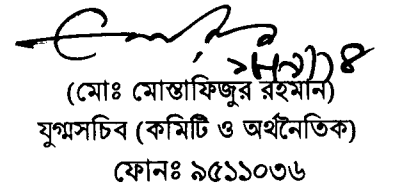 (মোঃ মোস্তাফিজুর রহমান)
যুগ্মসচিব (কমিটি ও অর্থনৈতিক)
ফোনঃ ৯৫১১০৩৬